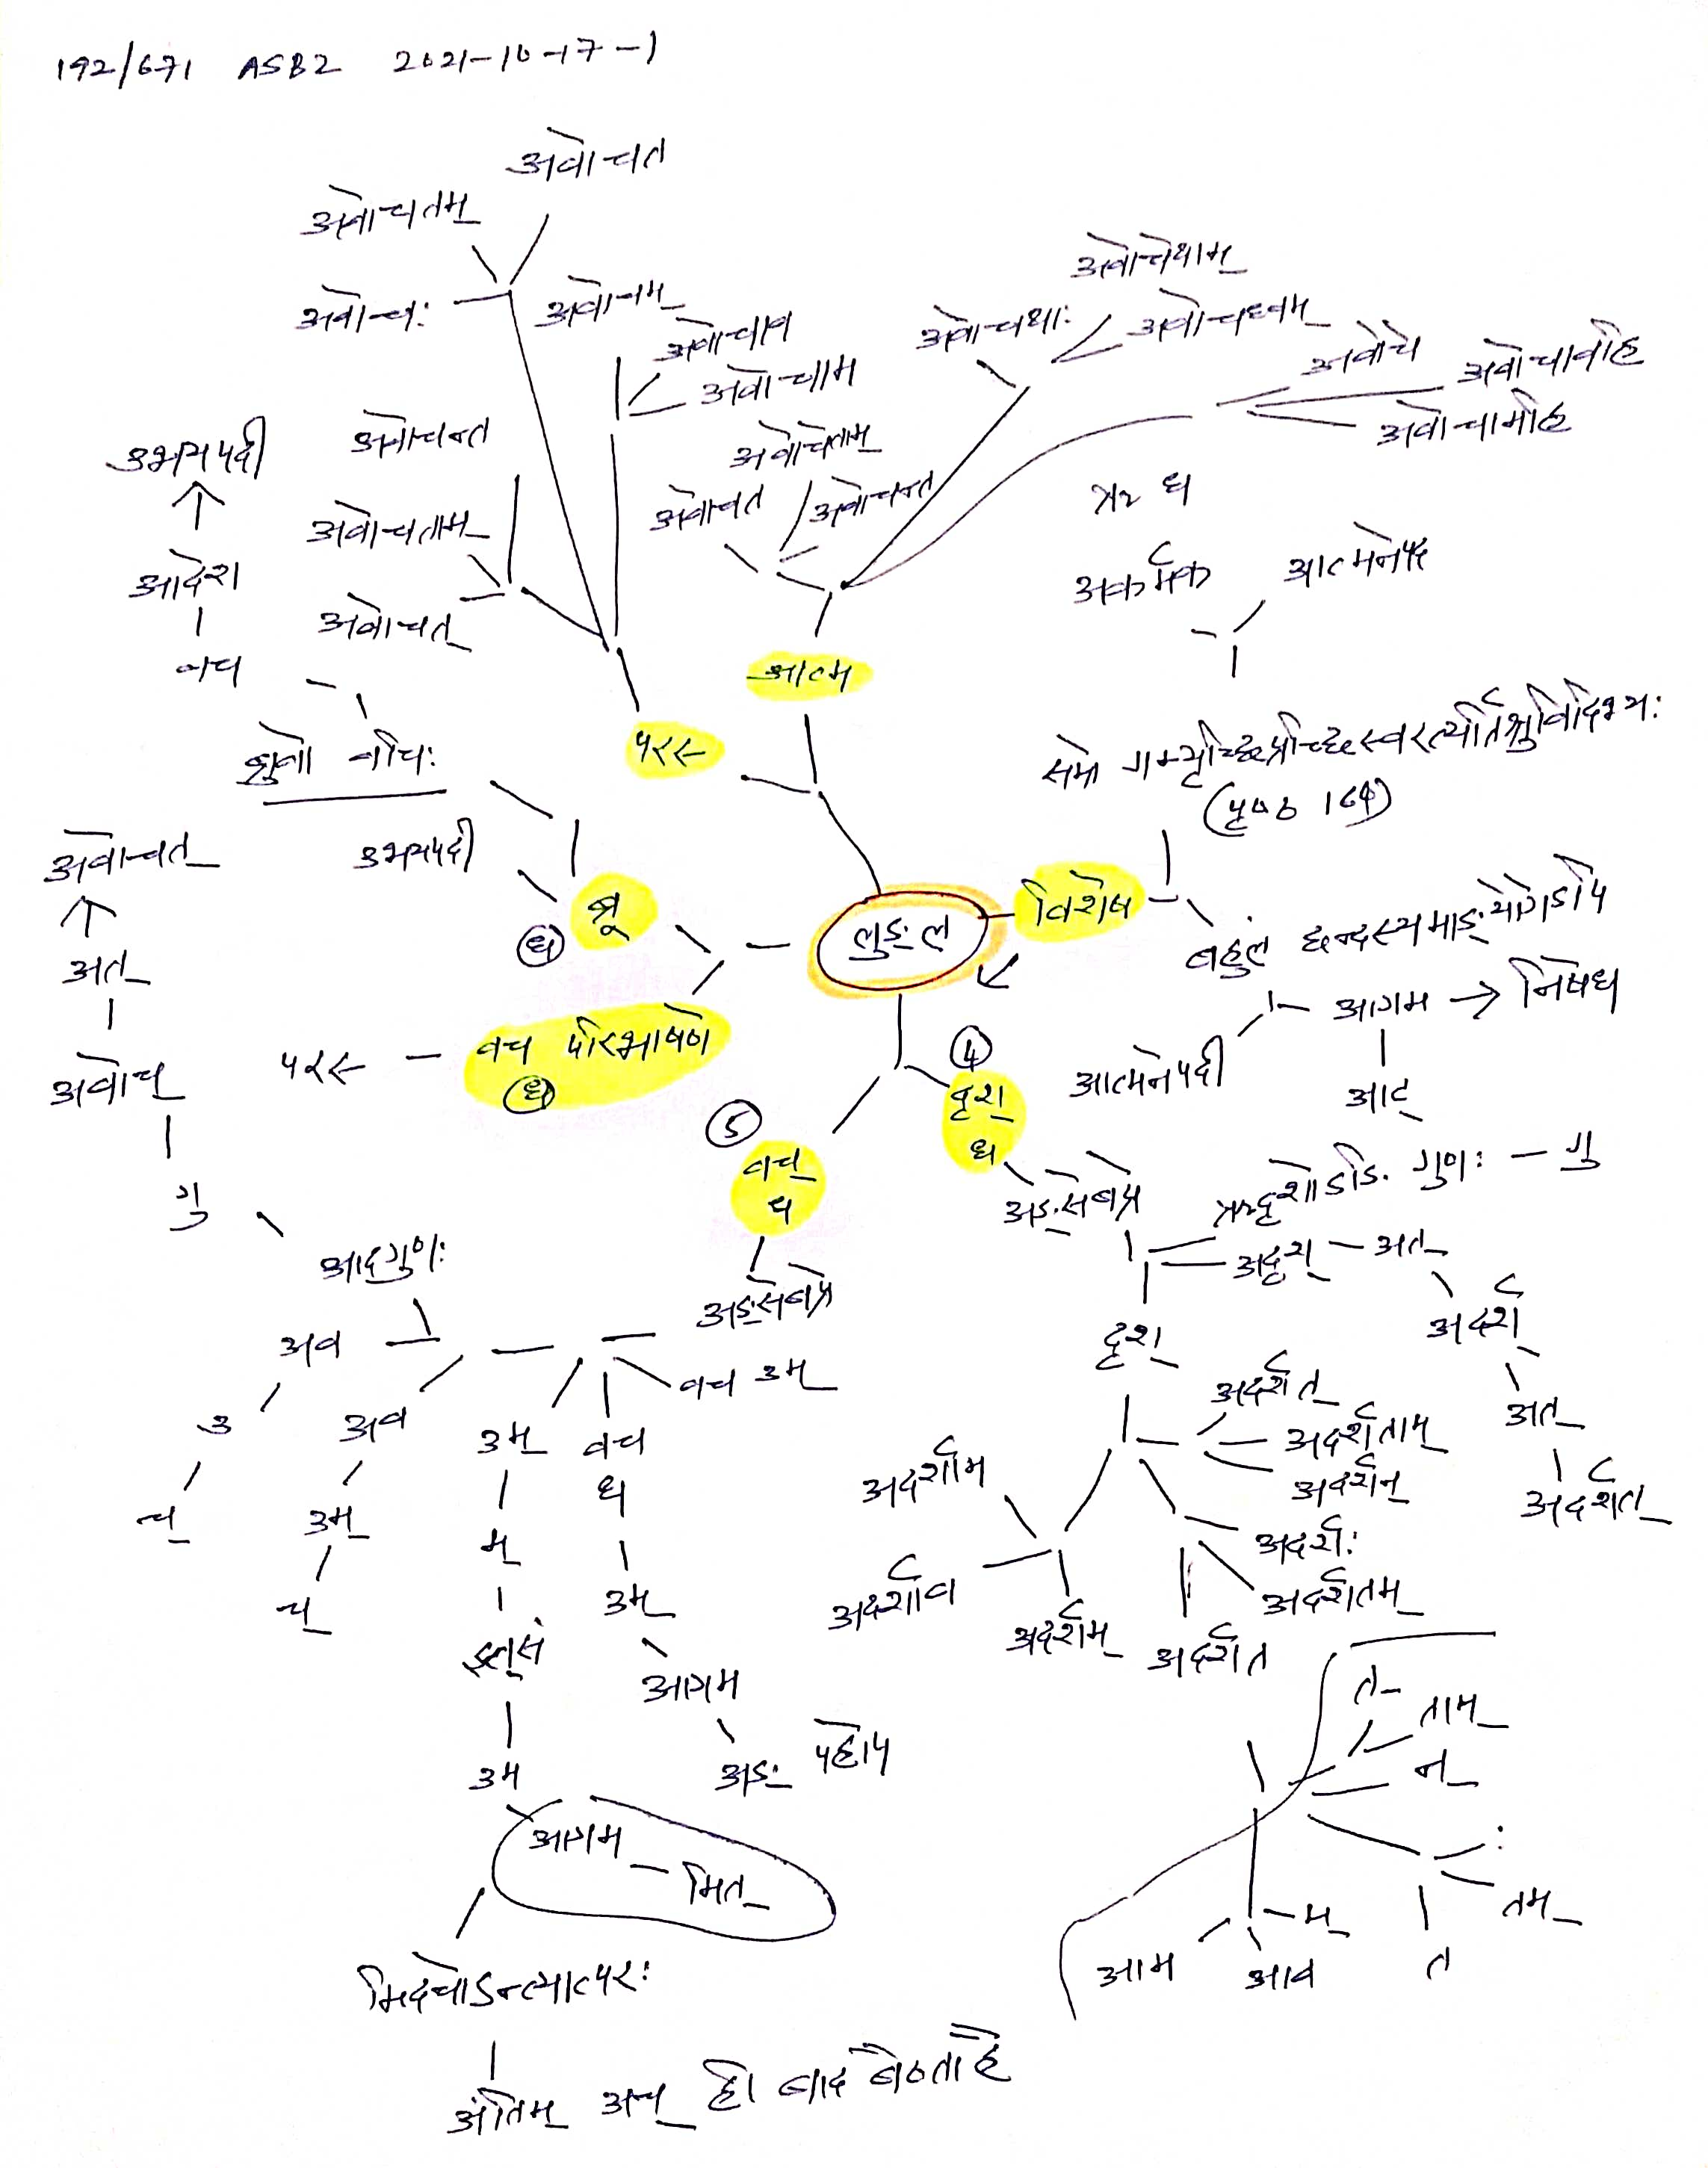 192/671 ASB2 2021-10-17-1
अवोचत
अवोचतम्
अवोचः
अवोचम्
अवोचाव
अवोचाम
अवोचन्त
अवोचताम्
अवोचत्
अवोचेथाम्
अवोचथाः
अवोचध्वम्
अवोचे
अवोचावहि
अवोचामहि
अवोचेताम्
अवोचत
अवोचन्त
उभयपदी
आदेश
वच
ब्रुवो वचिः
उभयपदी
ब्रू
ध
आत्म
परस्
अकर्मक
आत्मनेपद
समो गम्यृच्छिप्रच्छिस्वरत्यर्तिश्रुविदिभ्यः
(पृष्ठ 169)
लुङ् ल
विशेष
बहुलं छन्दस्यमाङ्योगेऽपि
आगम → निषेध
आट्
आत्मनेपदी
अवोचत्
अत्
अवोच्
गु
आद्गुणः
परस्
वच परिभाषणे
ध
4
दृश्
ध
अङ् सेबप्र
ऋदृशोऽङि गुणः — गु
अदृश् — अत्
अदर्श्
अत्
अदर्शत्
दृश्
अदर्शत्
अदर्शताम्
अदर्शन्
अदर्शः
अदर्शतम्
अदर्शत
अदर्शम्
अदर्शाव
अदर्शाम
5
वच्
ध
अङ् सेबप्र
वच उम्
वच
ध
उम्
आगम
अङ् पहोप
उम्
म्
इत्सं
उम
आगम
मित्
अव
उ
च्
अव
उम्
च्
मिदचोऽन्त्यात्परः
अंतिम् अच् हो बाद बैठता है
त्
ताम्
न्
:
तम्
त
म्
आव
आम